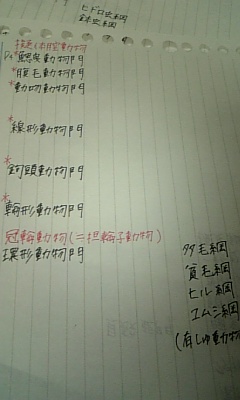 ヒドロ虫綱
鉢虫綱
擬体腔動物
*鰓曳動物門
*腹毛動物門
*動吻動物門
*線形動物門
*鉤頭動物門
*輪形動物門
冠輪動物(=担輪子動物)
環形動物門
多毛綱
貧毛綱
ヒル綱
ユムシ綱
(有しゅ動物